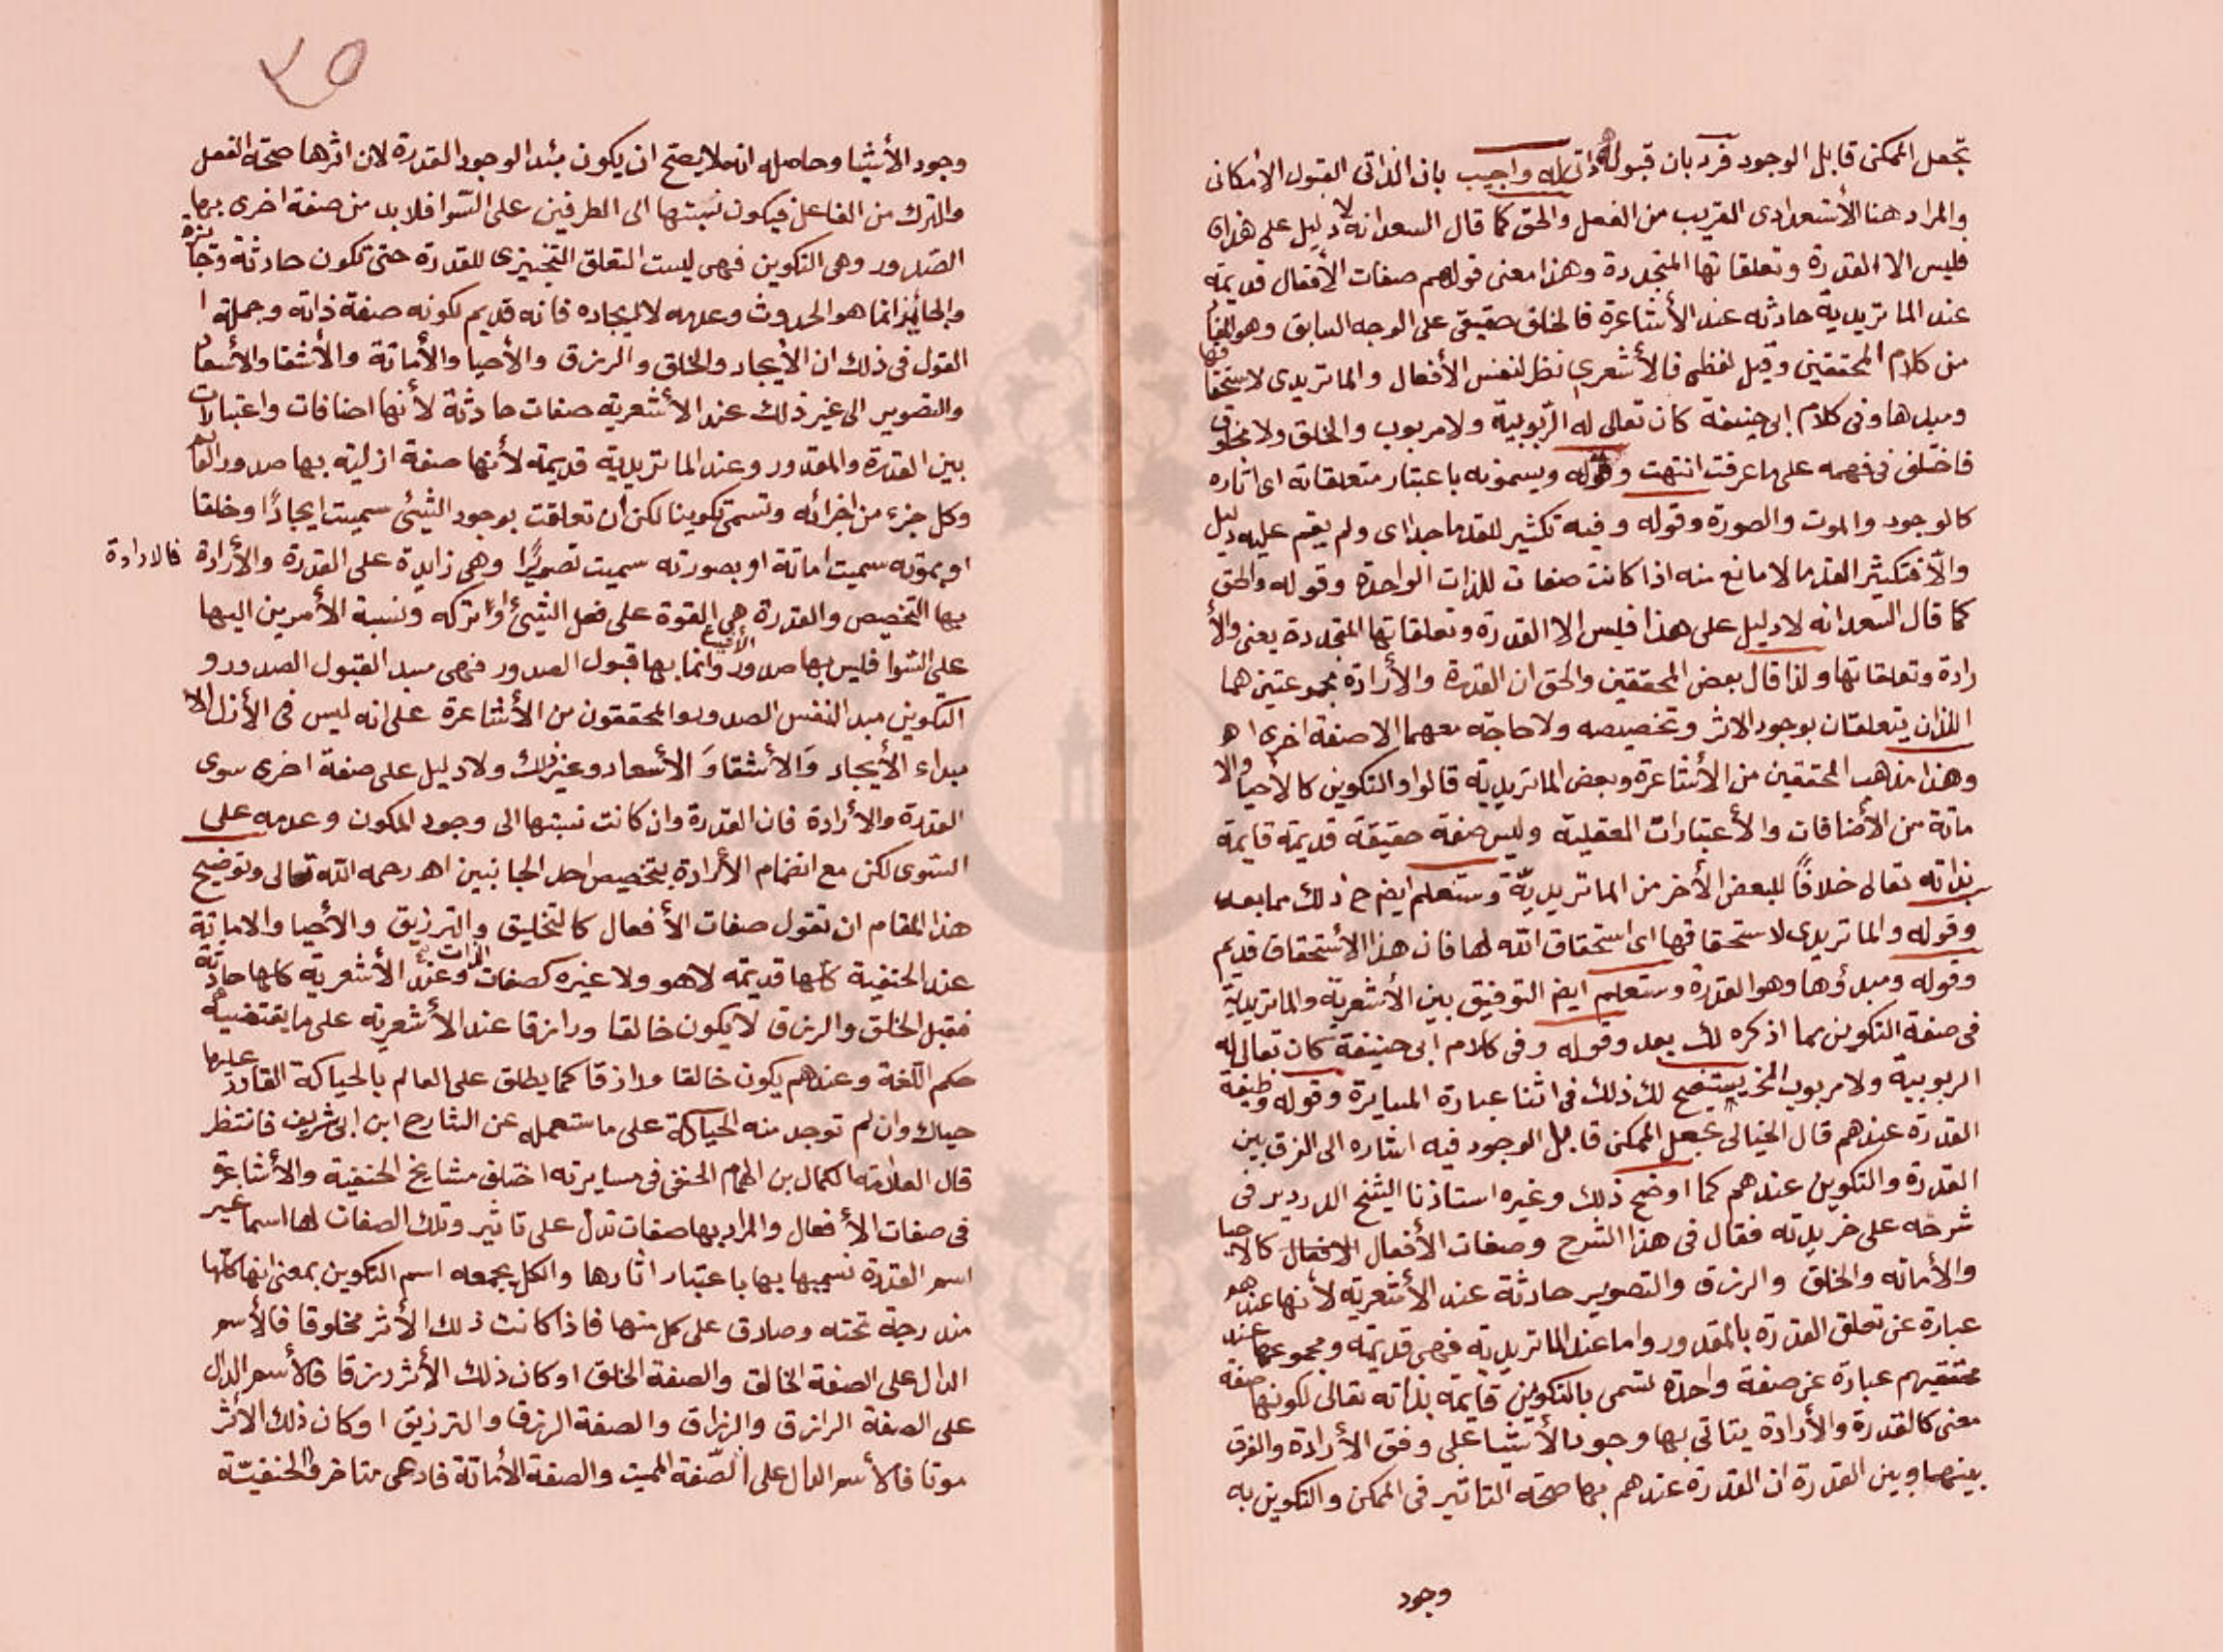 تجعل الممكن قابل الوجود فرد بان قبوله ذاتى له واجيب بان الذاتى القبول الأمكانى
والمراد هنا الأستعدادى القريب من الفعل والحق كما قال السعد انه لا دليل على هذا
فليس الا القدرة وتعلقاتها المتجددة وهذا معنى قولهم صفات الأفعال قديمة
عند الماتريدية حادثه عند الأشاعرة فالخلف حقيقى على الوجه السابق وهو
من كلام المحققين وقيل لفظى فالأشعرى نظر لنفس الأفعال والماتريدى لاستحقاقها
ومبدها وفى كلام ابى حنيفة كان تعالى له الربوبية ولا مربوب والخلق ولا مخلوق
فاختلف فى فهمه على ما عرفت انتهت وقوله ويسمونه باعتبار متعلقاته اى اثاره
كالوجود والموت والصورة وقوله وفيه تكثير للقدما جدا اى ولم يقم عليه دليل
والا فتكثير القدما لا مانع منه اذا كانت صفات للذات الواحدة وقوله والحق
كما قال السعد انه لا دليل على هذا فليس الا القدرة وتعلقاتها المتجددة يعنى والأ
رادة وتعلقاتها ولذا قال بعض المحققين والحق ان القدرة والأرادة مجموعتين هما
اللذان يتعلقان بوجود الاثر وتخصيصه ولا حاجة معهما الا صفة اخرى اه
وهذا مذهب المحققين من الأشاعرة وبعض الماتريدية قالوا والتكوين كالاحيا والا
ماتة من الأضافات والأعتبارات العقلية وليس صفة حقيقة قديمة قايمة
بذاته تعالى خلافًا للبعض الأخر من الماتريديّة وستعلم ايضح ذلك مما بعد
وقوله والماتريدى لاستحقاقها اى استحقاق الله لها فان هذا الأستحقاق قديم
وقوله ومبدؤها وهو القدرة وستعلم ايض التوفيق بين الأشعرية والماتريدية
فى صفة التكوين مما اذكره لك بعد وقوله وفى كلام ابى حنيفة كان تعالى له
الربوبية ولا مربوب الخ يستضح لك ذلك فى اثنا عبارة المسايرة وقوله وظيفة
القدرة عندهم قال الخيالى تجعل الممكن قابل الوجود فيه اشاره الى الفرق بين
القدرة والتكوين عندهم كما اوضح ذلك وغيره استاذنا الشيخ الدردير فى
شرحه على خريدته فقال فى هذا الشرح وصفات الأفعال الافعال كالاحيا
والأماته والخلق والرزق والتصوير حادثة عند الأشعرية لأنها عندهم
عبارة عن تعلق القدرة بالمقدور واما عند الماتريدية فهى قديمة ومجموعها عند
محققيهم عبارة عن صفة واحدة تسمى بالتكوين قايمة بذاته تعالى لكونها صفة
معنى كالقدرة والأرادة يتاتى بها وجود الأشيا على وفق الأرادة والفرق
بينها وبين القدرة ان القدرة عندهم بها صحة التاثير فى الممكن والتكوين به
وجود
٢٥
وجود الأشيا وحاصله انه لا يصح ان يكون مبدا لوجود القدرة لان اثرها صحة الفعل
والترك من الفاعل فيكون نسبتها الى الطرفين على السوا فلا بد من صفة اخرى بها
الصدور وهى التكوين فهى ليست التعلق التنجيزى للقدرة حتى تكون حادثة وجائزة
والجائز انما هو الحدوث وعدمه لا ايجاده فانه قديم لكونه صفة ذاته وجملة ا
القول فى ذلك ان الأيجاد والخلق والرزق والأحيا والأماتة والأشقا والأسعاد
والتصوير الى غير ذلك عند الأشعرية صفات حادثة لأنها اضافات واعتبارات
بين القدرة والمقدور وعند الماتريدية قديمة لأنها صفة ازلية بها صدور العالم
وكل جزء من اجزائه وتسمى تكوينا لكن ان تعلقت بوجود الشئ سميت ايجادًا وخلقا
او بموته سميت اماتة او بصورته سميت تصويرًا وهى زايدة على القدرة والأرادة فالارادة
بها التخصيص والقدرة هى القوة على فعل الشئ او تركه ونسبة الأمرين اليها
على السوا فليس بها صدور الأشيا وانما بها قبول الصدور فهى مبدا لقبول الصدور و
التكوين مبدا لنفس الصدور والمحققون من الأشاعرة على انه ليس فى الأزل الا
مبداء الأيجاد وَالأشقا وَ الأسعاد وغير ذلك ولا دليل على صفة اخرى سوى
القدرة والأرادة فان القدرة وان كانت نسبتها الى وجود المكون وعدمه على
السوى لكن مع انضمام الأرادة يتخصيص احد الجانبين اه رحمه الله تعالى وتوضيح
هذا المقام ان تقول صفات الأفعال كالتخليق والترزيق والأحيا والاماتة
عند الحنفية كلها قديمة لا هو ولا غيره كصفات الذات وعند الأشعرية كلها حادثة
فقبل الخلق والرزق لا يكون خالقا ورازقا عند الأشعرية على ما يقتضيه
حكم اللغة وعندهم يكون خالقا ورازقا كما يطلق على العالم بالحياكة القادر عليها
حياك وان لم توجد منه الحياكة على ما ستعمله عن الشارح ابن ابى شريف فانتظر
قال العلامة الكمال بن الهمام الحنفى فى مسايرته اختلف مشايخ الحنفية والأشاعرة
فى صفات الأفعال والمراد بها صفات تدل على تاثير وتلك الصفات لها اسما غير
اسم القدرة تسميها بها باعتبار اثارها والكل يجمعه اسم التكوين بمعنى انها كلها
مندرجة تحته وصادق على كل منها فاذا كانت ذلك الأثر مخلوقا فالأسم
الدال على الصفة الخالق والصفة الخلق او كان ذلك الأثر رزقا فالأسم الدال
على الصفة الرازق والرزاق والصفة الرزق والترزيق او كان ذلك الأثر
موتا فالأسم الدال على الصّفة المميت والصفة الأماتة فادعى متاخروا الحنفيّة